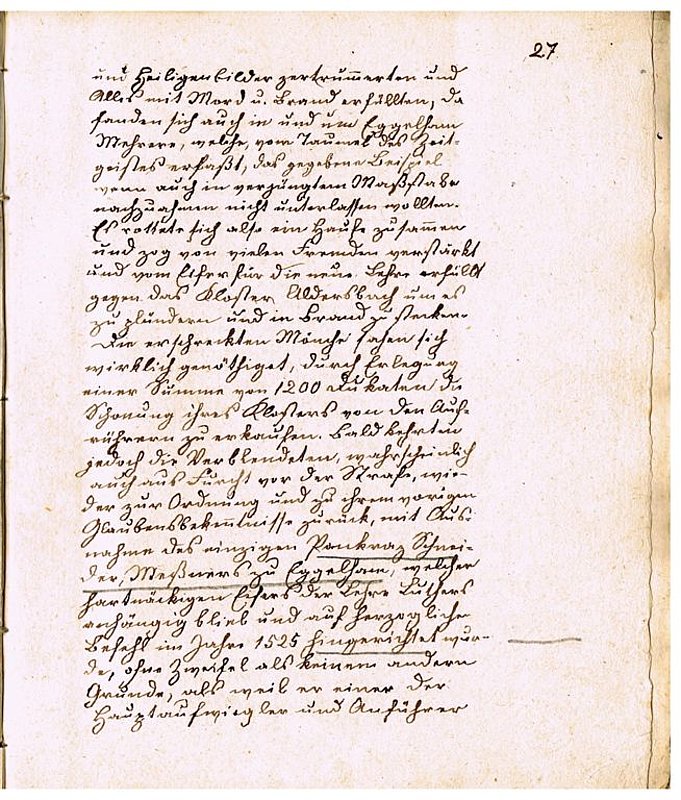 27
und Heiligenbilder zertrümmerten und
Alles mit Mord u. Brand erfüllten, da
fanden sich auch in und um Eggelham
Mehrere, welche, vom Taumel des Zeit-
geistes erfaßt, das gegebene Beispiel
wenn auch in verjüngtem Maßstabe
nachzuahmen nicht unterlassen wollten.
Es rottete sich also ein Haufe zusammen
und zog von vielen Fremden verstärkt
und vom Eifer für die neue Lehre erfüllt
gegen das Kloster Aldersbach um es
zu plündern und in Brand zu stecken.
Die erschreckten Mönche sahen sich
wirklich genöthiget, durch Erlegung
einer Summe von 1200 Dukaten die
Schonung ihres Klosters von den Auf-
rührern zu erkaufen. Bald kehrten
jedoch die Verblendeten, wahrscheinlich
auch aus Furcht vor der Strafe, wie-
der zur Ordnung und zu ihrem vorigen
Glaubensbekenntnisse zurück, mit Aus-
nahme des einzigen Pankraz Schnei-
der, Meßners zu Eggelham, welcher
hartnäckigen Eifers der Lehre Luthers
anhängig blieb und auf herzogliche
Befehl im Jahre 1525 hingerichtet wur-
de, ohne Zweifel als keinem andern
Grunde, als weil er einer der
Hauptaufwiegler und Anführer